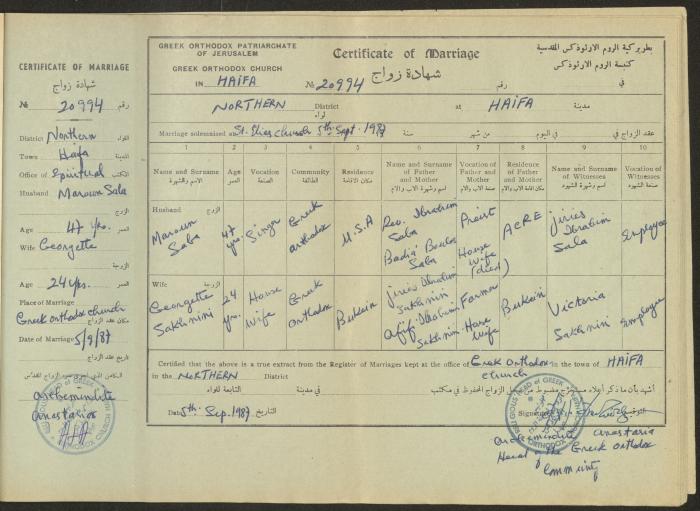 CERTIFICATE OF MARRIAGE
شهادة زواج
№ 20994 رقم
District Northern اللواء
Town Haifa المدينة
Office of Spiritual المكتب
Husband Maroun Saba
الزوج
Age 47 yrs. العمر
Wife Georgette
الزوجة
Age 24 yrs. العمر
Place of Marriage
Greek orthodox church
مكان عقد الزواج
Date of Marriage 5/9/87
تاريخ عقد الزواج
Archemindite
anastarios
GREEK ORTHODOX PATRIARCHATE
OF JERUSALEM
GREEK ORTHODOX CHURCH
IN HAIFA
Certificate of Marriage
شهادة زواج
№ 20994 رقم
بطريركية الروم الارثوذكس المقدسية
كنيسة الروم الارثوذكس
في
NORTHERN District لواء at HAIFA مدينة
Marriage solemnised on St. Elias church 5th Sept. 1987 سنة من شهر في اليوم عقد الزواج في
1 2 3 4 5 6 7 8 9 10
Name and Surname الاسم والشهرة
Age العمر
Vocation الصنعة
Community الطائفة
Residence مكان الاقامة
Name and Surname of Father and Mother اسم وشهرة الاب والام
Vocation of Father and Mother صنعة الاب والام
Residence of Father and Mother مكان اقامة الاب والام
Name and Surname of Witnesses اسم وشهرة الشهود
Vocation of Witnesses صنعة الشهود
Husband الزوج
Maroun Saba
47 yrs.
Singer
Greek orthodox
U.S.A
Rev. Ibrahim Saba
Badia' Boulos Saba
Priest
House wife (died)
ACRE
Jiries Ibrahim Saba
Employee
Wife الزوجة
Georgette Sakhnini
24 yrs.
House Wife
Greek orthodox
Bukein
Jiries Ibrahim Sakhnini
Afifi Ibrahim Sakhnini
Farmer
House wife
Bukein
Victoria Sakhnini
Employee
Certified that the above is a true extract from the Register of Marriages kept at the office of Greek Orthodox church in the town of HAIFA
in the NORTHERN District التابعة للواء في مدينة
Date 5th Sep. 1987 التاريخ
Signature
Archemindite anastaria
Head of the Greek Orthodox
Community